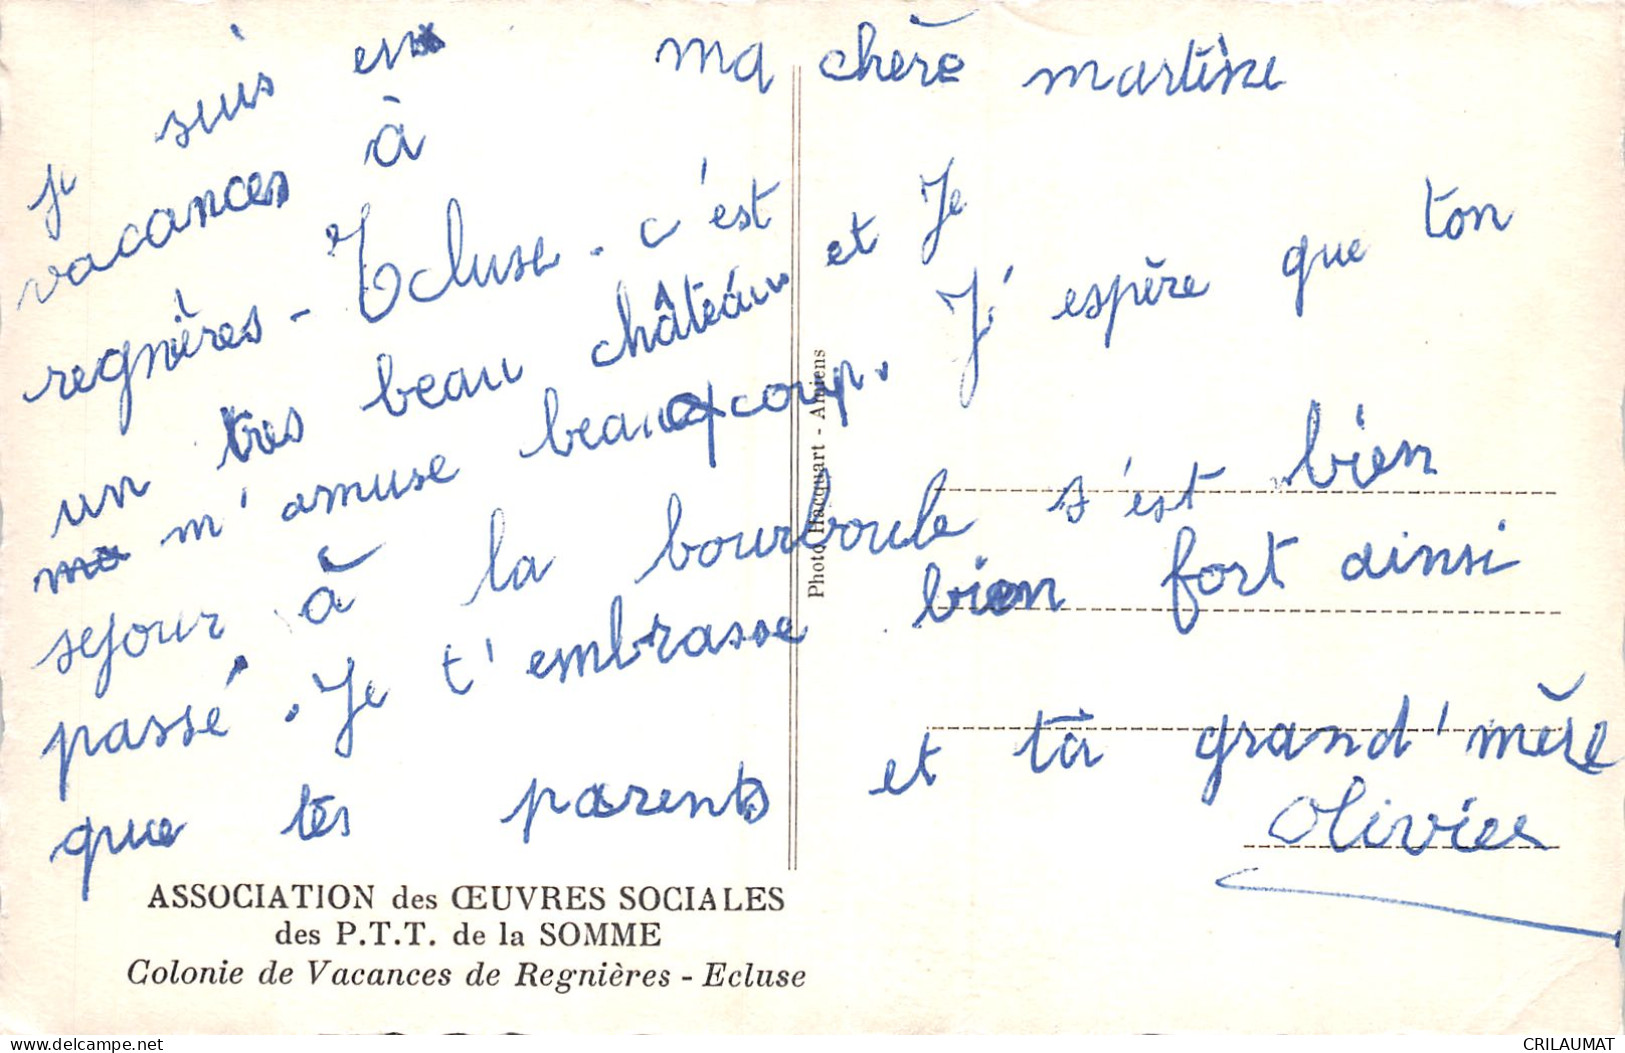 ma chère martine
je suis en
vacances à
regnières - Ecluse. c'est
un tres beau château et Je
m'amuse beaucoup. J'espère que ton
sejour à la bourboule s'est bien
passé. Je t'embrasse bien fort ainsi
que tes parents et ta grand'mère
Olivier
Photo Hacquart - Amiens
ASSOCIATION des ŒUVRES SOCIALES
des P.T.T. de la SOMME
Colonie de Vacances de Regnières - Ecluse
delcampe.net
CRILAUMAT